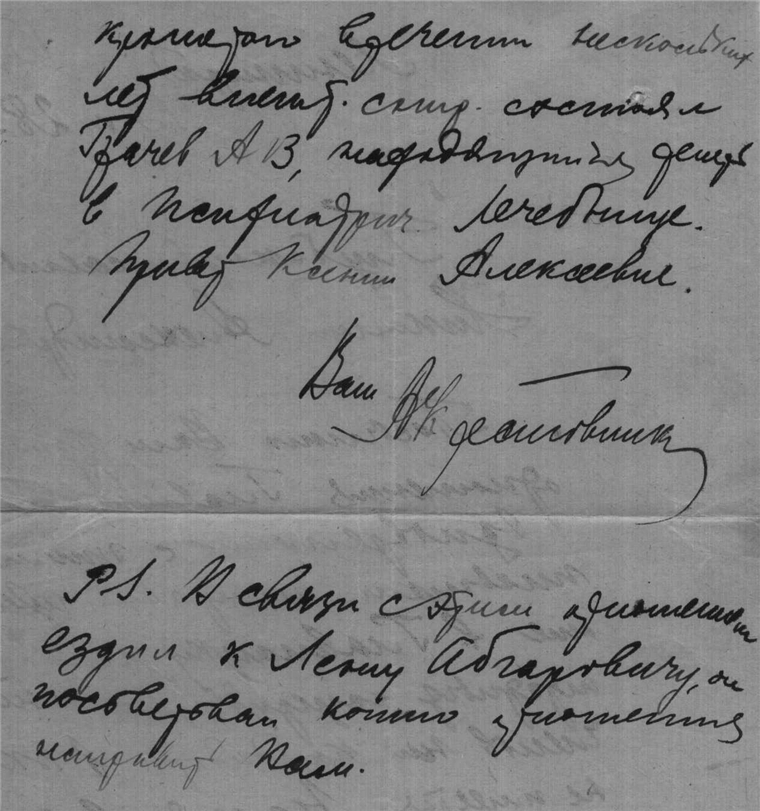 которого в течении нескольких
лет внешт. сотр. состоял
Грачев А В, находящийся теперь
в Психиатрич. Лечебнице.
Привет Ксении Алексеевне.
Ваш А Крестовников
PS. В связи с этим отношением
ездил к Леону Абгаровичу, он
посоветовал копию отношения
направить Вам.